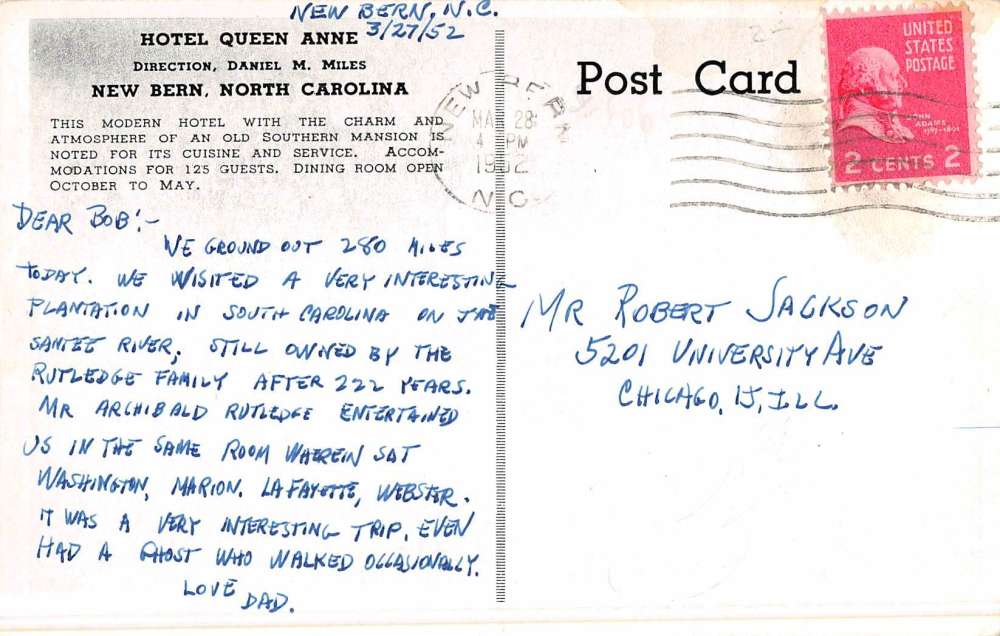 NEW BERN, N.C.
3/27/52
HOTEL QUEEN ANNE
DIRECTION, DANIEL M. MILES
NEW BERN, NORTH CAROLINA
THIS MODERN HOTEL WITH THE CHARM AND
ATMOSPHERE OF AN OLD SOUTHERN MANSION IS
NOTED FOR ITS CUISINE AND SERVICE. ACCOM-
MODATIONS FOR 125 GUESTS. DINING ROOM OPEN
OCTOBER TO MAY.
DEAR BOB:-
WE GROUND OUT 280 MILES
TODAY. WE VISITED A VERY INTERESTING
PLANTATION IN SOUTH CAROLINA ON THE
SANTEE RIVER, STILL OWNED BY THE
RUTLEDGE FAMILY AFTER 222 YEARS.
MR ARCHIBALD RUTLEDGE ENTERTAINED
US IN THE SAME ROOM WHEREIN SAT
WASHINGTON, MARION. LAFAYETTE, WEBSTER.
IT WAS A VERY INTERESTING TRIP. EVEN
HAD A GHOST WHO WALKED OCCASIONALLY.
LOVE
DAD.
Post Card
NEW BERN
MAR 28
4 PM
1952
N.C.
UNITED
STATES
POSTAGE
JOHN
ADAMS
1797-1801
2 CENTS 2
MR ROBERT JACKSON
5201 UNIVERSITY AVE
CHICAGO, 15, ILL.